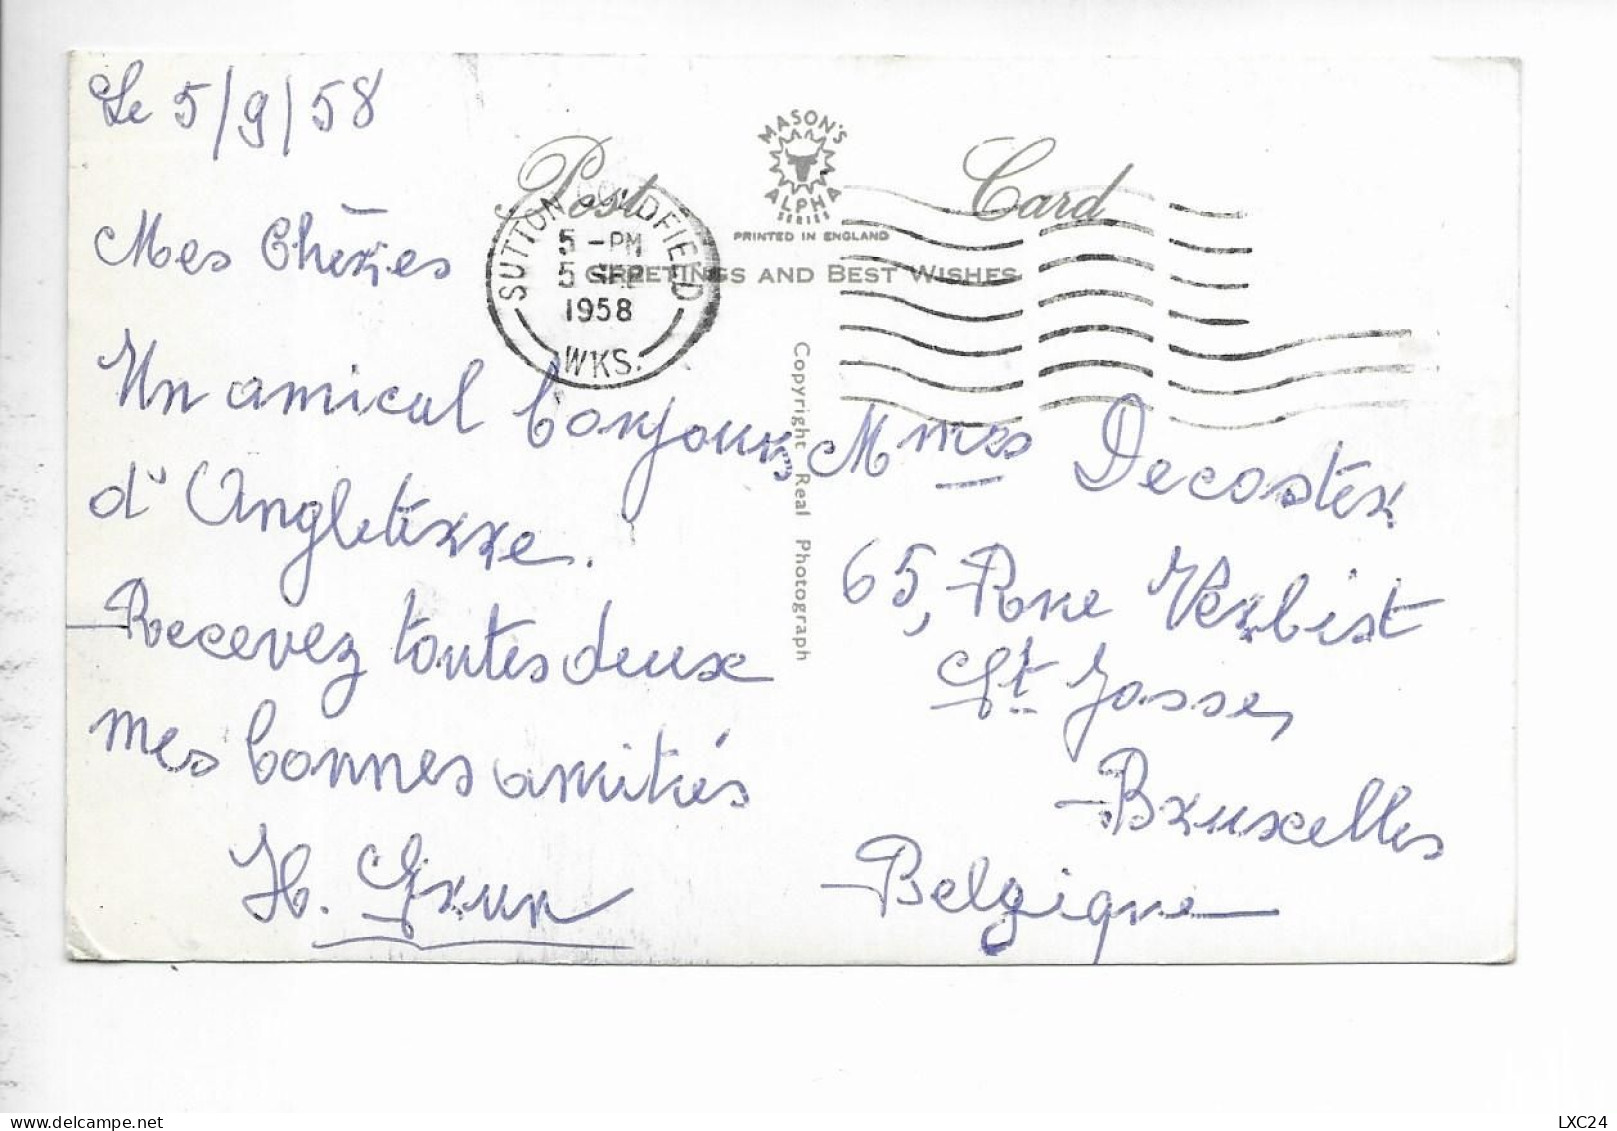 Le 5/9/58
Post Card
MASON'S
ALPHA
SERIES
PRINTED IN ENGLAND
GREETINGS AND BEST WISHES
SUTTON COLDFIELD
5 - PM
5 SEP
1958
WKS.
Mes Chéries
Un amical bonjour
d'Angleterre.
Recevez toutes deux
mes bonnes amitiés
H. Grun
Copyright Real Photograph
Mmes Decoster
65, Rue Verbist
St Josse,
Bruxelles
Belgique
LXC24